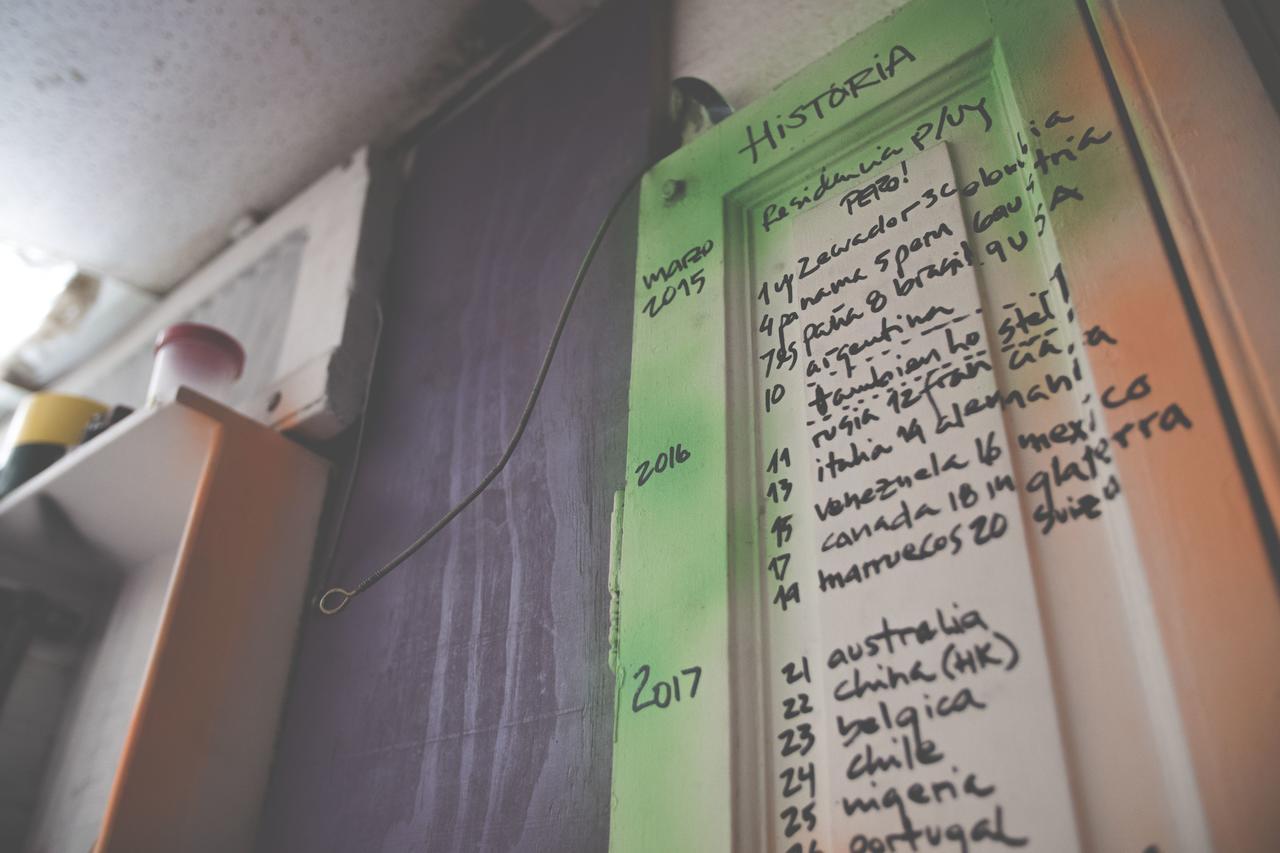 HiSTÓRiA
Residencia P/Uy
PERO!
marzo
2015
1 uy 2 ecuador 3 colombia
4 panama 5 peru 6 austria
7 españa 8 brasil 9 USA
10 argentina
tambien hostel!
2016
11 rusia 12 francia
13 italia 14 alemania
15 venezuela 16 mexico
17 canada 18 inglaterra
19 marruecos 20 suiza
2017
21 australia
22 china (HK)
23 belgica
24 chile
25 nigeria
26 portugal